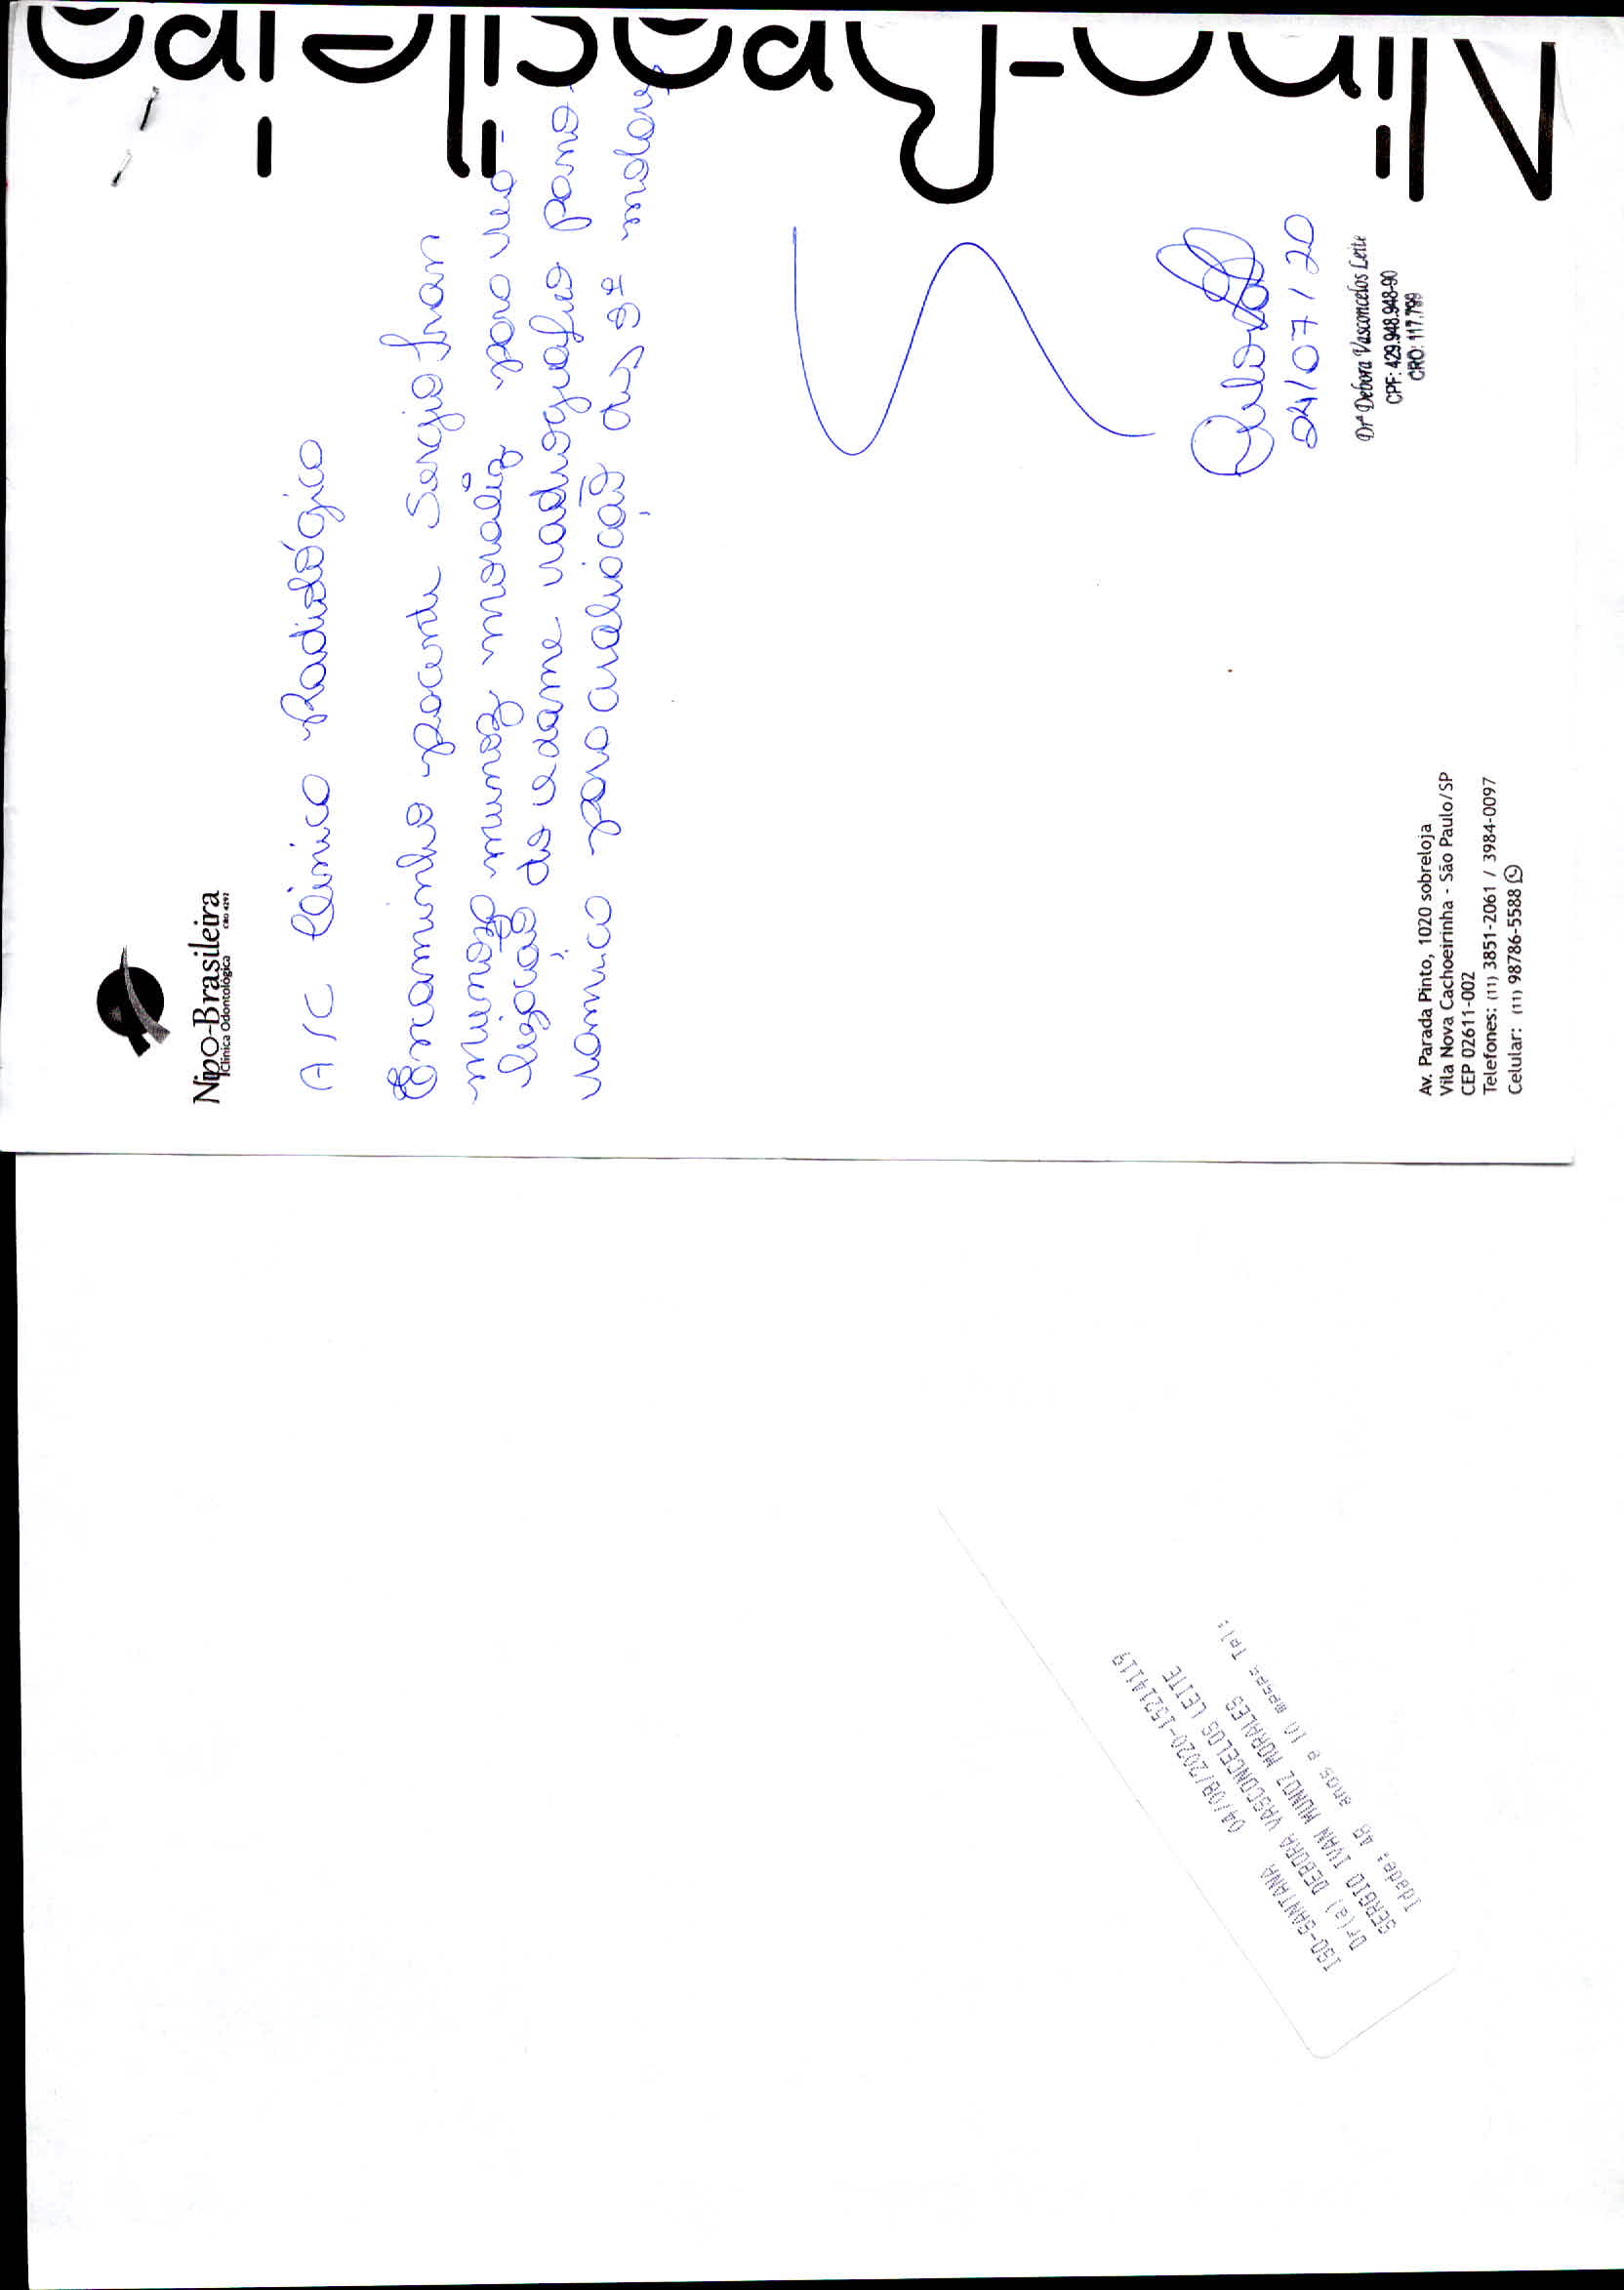 Nipo-Brasileira
Clínica Odontológica
CRO 4292
Nipo-Brasileira
A/C Clínica Radiológica
Encaminho paciente Sergio Ivan
munoz morales para rea-
lização de exame radiografia pano-
râmica para avaliação dos 3º molares
24/07/20
Drª Debora Vasconcelos Leite
CPF: 429.948.948-90
CRO: 117.799
Av. Parada Pinto, 1020 sobreloja
Vila Nova Cachoeirinha - São Paulo/SP
CEP 02611-002
Telefones: (11) 3851-2061 / 3984-0097
Celular: (11) 98786-5588
ISO-SANTANA 04/08/2020-15214119
Dr(a) DEBORA VASCONCELOS LEITE
SERGIO IVAN MUNOZ MORALES
Idade: 48 anos e 10 meses Tel: